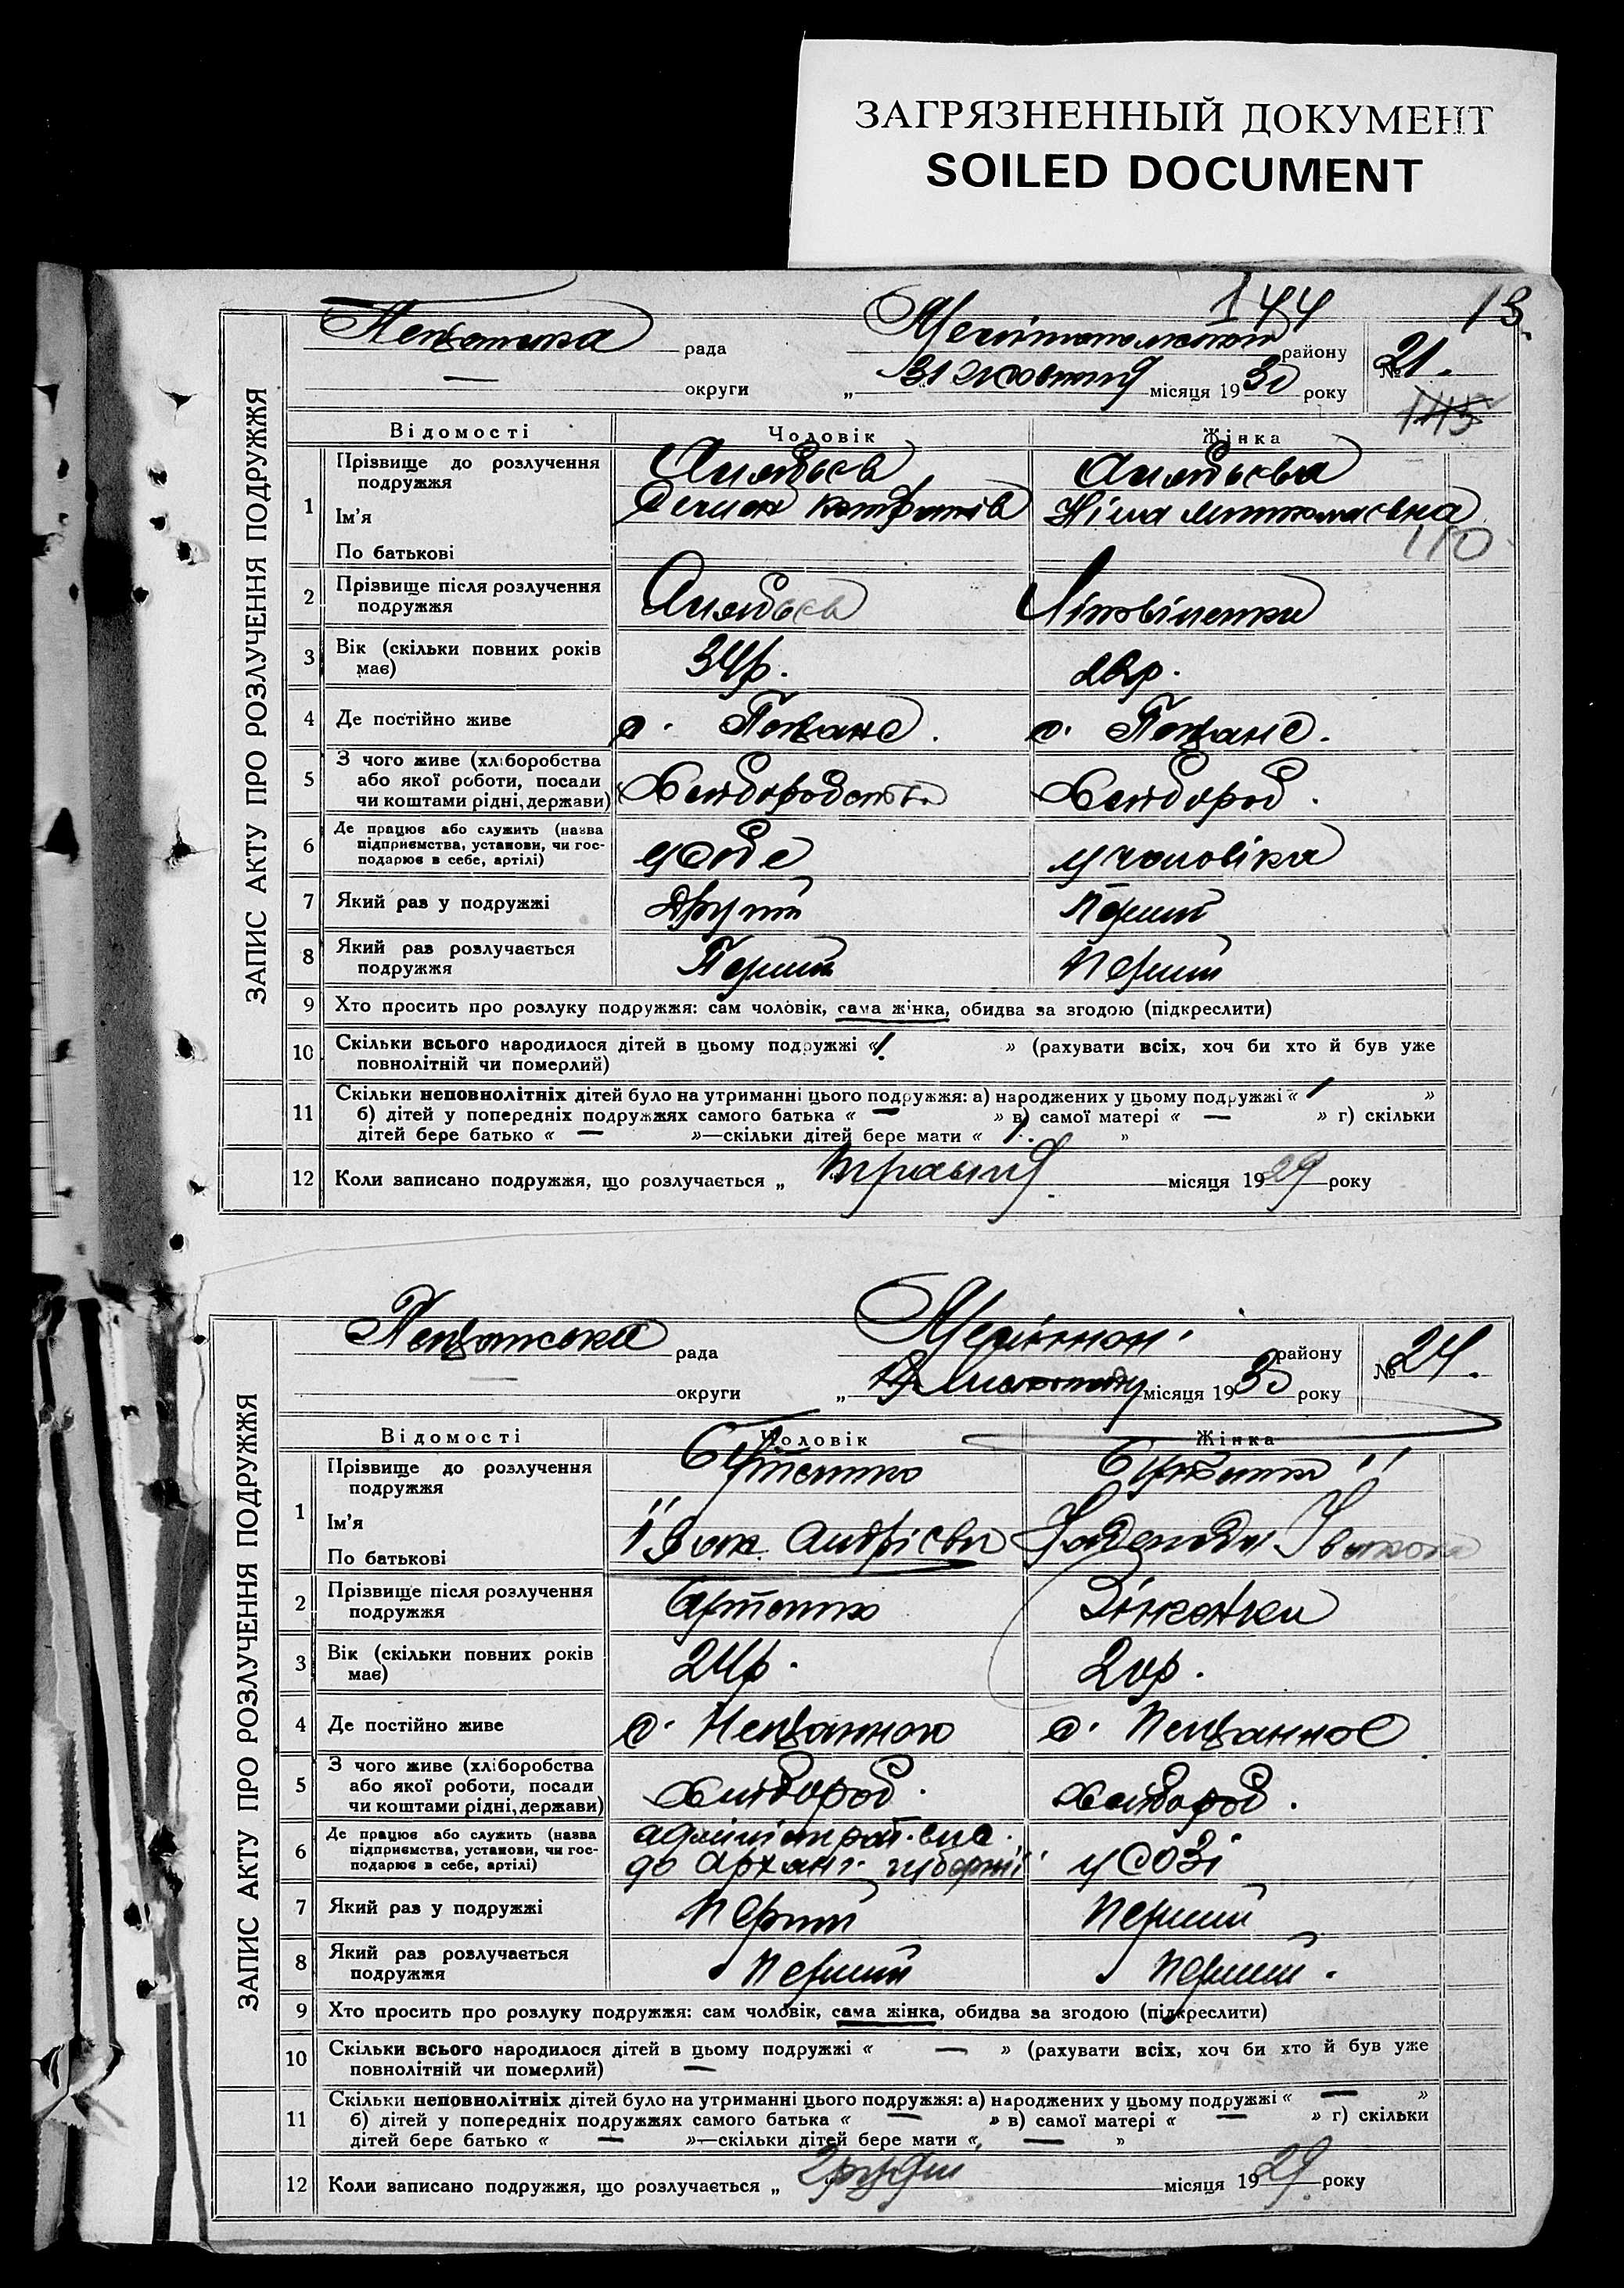 ЗАГРЯЗНЕННЫЙ ДОКУМЕНТ
SOILED DOCUMENT
144
13.
рада
району
№ 21.
округи
„ 31 жовтня місяця 1930 року
145
ЗАПИС АКТУ ПРО РОЗЛУЧЕННЯ ПОДРУЖЖЯ
Відомості Чоловік Жінка
1 Прізвище до розлучення
подружжя
Ім'я
По батькові
110
2 Прізвище після розлучення
подружжя
3 Вік (скільки повних років
має) 34р.
4 Де постійно живе с. Пещане. с. Пещане.
5 З чого живе (хліборобства
або якої роботи, посади
чи коштами рідні, держави) Хлібороб.
6 Де працює або служить (назва
підприємства, установи, чи гос-
подарює в себе, артілі) у себе у чоловіка
7 Який раз у подружжі Другий Перший
8 Який раз розлучається
подружжя Перший Перший
9 Хто просить про розлуку подружжя: сам чоловік, сама жінка, обидва за згодою (підкреслити)
10 Скільки всього народилося дітей в цьому подружжі « 1. » (рахувати всіх, хоч би хто й був уже
повнолітній чи померлий)
11 Скільки неповнолітніх дітей було на утриманні цього подружжя: а) народжених у цьому подружжі « 1 »
б) дітей у попередніх подружжях самого батька « — » в) самої матері « — » г) скільки
дітей бере батько « — »—скільки дітей бере мати « 1. »
12 Коли записано подружжя, що розлучається „ травня місяця 1929 року
Пещанська рада
району
№ 24.
округи
„ листопаду місяця 1930 року
ЗАПИС АКТУ ПРО РОЗЛУЧЕННЯ ПОДРУЖЖЯ
Відомості Чоловік Жінка
1 Прізвище до розлучення
подружжя
Ім'я
По батькові
2 Прізвище після розлучення
подружжя Зінкенки
3 Вік (скільки повних років
має) 24р. 20р.
4 Де постійно живе с. Пещанною с. Пещанное
5 З чого живе (хліборобства
або якої роботи, посади
чи коштами рідні, держави) хлібороб. хлібороб.
6 Де працює або служить (назва
підприємства, установи, чи гос-
подарює в себе, артілі) у СОЗі
до Арханг. губернії
7 Який раз у подружжі Перший Перший
8 Який раз розлучається
подружжя Перший Перший.
9 Хто просить про розлуку подружжя: сам чоловік, сама жінка, обидва за згодою (підкреслити)
10 Скільки всього народилося дітей в цьому подружжі « — » (рахувати всіх, хоч би хто й був уже
повнолітній чи померлий) —
11 Скільки неповнолітніх дітей було на утриманні цього подружжя: а) народжених у цьому подружжі « — »
б) дітей у попередніх подружжях самого батька « — » в) самої матері « — » г) скільки
дітей бере батько « — »—скільки дітей бере мати « — »
12 Коли записано подружжя, що розлучається „ Грудня місяця 1929 року